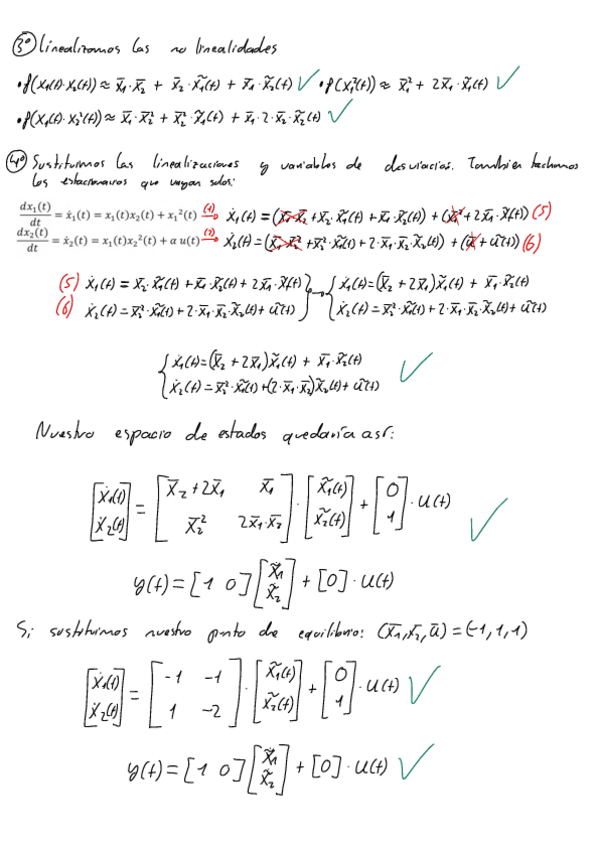 3º Linealizamos las no linealidades
• f(x₁(t)·x₂(t)) ≈ x̄₁·x̄₂ + x̄₂·x̃₁(t) + x̄₁·x̃₂(t) ✓ • f(x₁²(t)) ≈ x̄₁² + 2x̄₁·x̃₁(t) ✓
• f(x₁(t)·x₂²(t)) ≈ x̄₁·x̄₂² + x̄₂²·x̃₁(t) + x̄₁·2·x̄₂·x̃₂(t) ✓
4º Sustituimos las linealizaciones y variables de desviación. También tachamos
los estacionarios que vayan solos:
dx₁(t)/dt = ẋ₁(t) = x₁(t)x₂(t) + x₁²(t) (1) → ẋ₁(t) = (x̄₁·x̄₂ + x̄₂·x̃₁(t) + x̄₁·x̃₂(t)) + (x̄₁² + 2x̄₁·x̃₁(t)) (5)
dx₂(t)/dt = ẋ₂(t) = x₁(t)x₂²(t) + α u(t) (2) → ẋ₂(t) = (x̄₁·x̄₂² + x̄₂²·x̃₁(t) + 2·x̄₁·x̄₂·x̃₂(t)) + (ū + ũ(t)) (6)
(5) ẋ₁(t) = x̄₂·x̃₁(t) + x̄₁·x̃₂(t) + 2x̄₁·x̃₁(t) } → { ẋ₁(t) = (x̄₂ + 2x̄₁)x̃₁(t) + x̄₁·x̃₂(t)
(6) ẋ₂(t) = x̄₂²·x̃₁(t) + 2·x̄₁·x̄₂·x̃₂(t) + ũ(t) } → { ẋ₂(t) = x̄₂²·x̃₁(t) + 2·x̄₁·x̄₂·x̃₂(t) + ũ(t)
{ ẋ₁(t) = (x̄₂ + 2x̄₁)x̃₁(t) + x̄₁·x̃₂(t)
{ ẋ₂(t) = x̄₂²·x̃₁(t) + (2·x̄₁·x̄₂)x̃₂(t) + ũ(t) ✓
Nuestro espacio de estados quedaría así:
[ẋ₁(t)] = [x̄₂ + 2x̄₁ x̄₁] · [x̃₁(t)] + [0] · u(t)
[ẋ₂(t)] [x̄₂² 2x̄₁·x̄₂] [x̃₂(t)] [1] ✓
y(t) = [1 0] [x̃₁ x̃₂] + [0] · u(t)
Si sustituimos nuestro punto de equilibrio: (x̄₁, x̄₂, ū) = (-1, 1, 1)
[ẋ₁(t)] = [-1 -1] · [x̃₁(t)] + [0] · u(t) ✓
[ẋ₂(t)] [1 -2] [x̃₂(t)] [1]
y(t) = [1 0] [x̃₁ x̃₂] + [0] · u(t) ✓